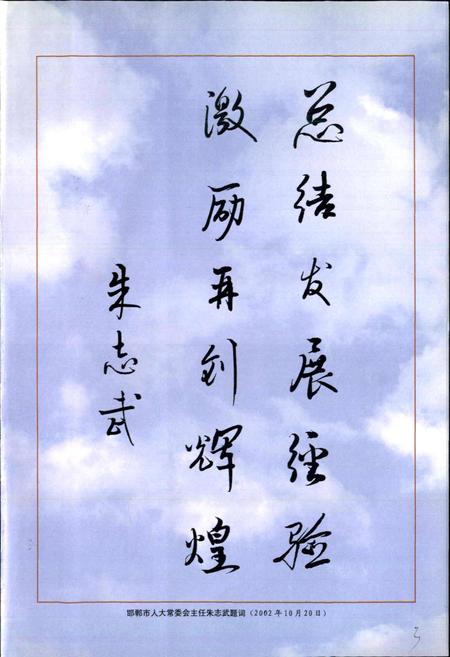 总结发展经验
激励再创辉煌
朱志武
邯郸市人大常委会主任朱志武题词（2002年10月20日）
3